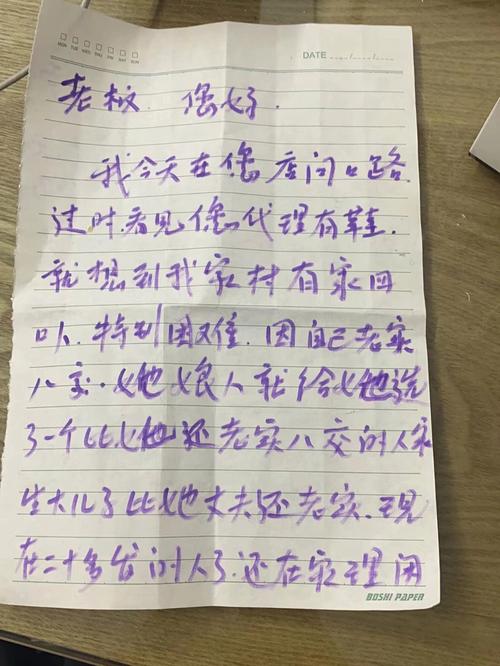 MON TUE WED THU FRI SAT SUN
DATE
老板 您好.
我今天在您店问口路
过时.看见您代理有鞋.
就想到我家村有家四
口人.特别困难.因自己老实
八交.她娘人就给她说
了一个比她还老实八交的人家
生大儿子比她丈夫还老实.现
在二十多岁的人了.还在家里困
BOSHI PAPER